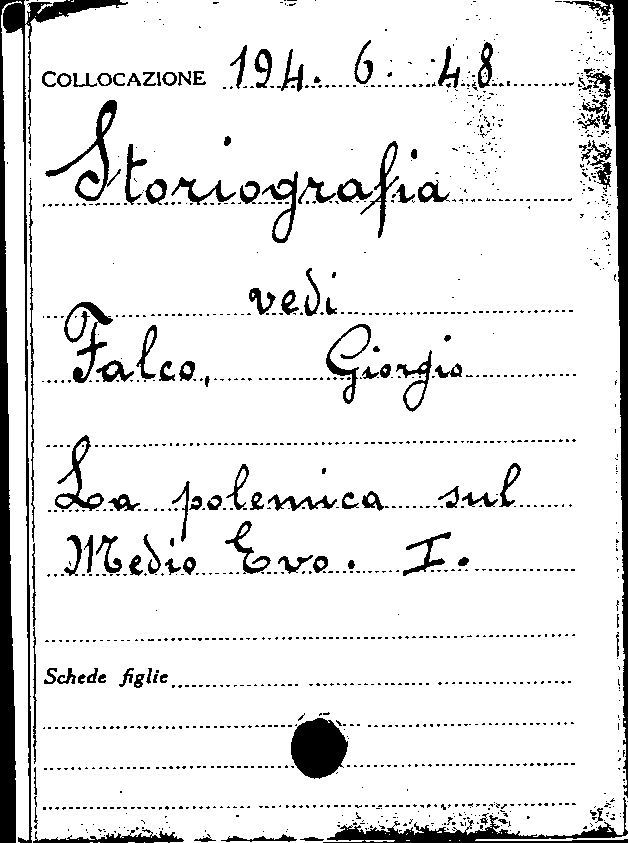 COLLOCAZIONE 194. 6. 48
Storiografia
vedi
Falco, Giorgio
La polemica sul
Medio Evo. I.
Schede figlie